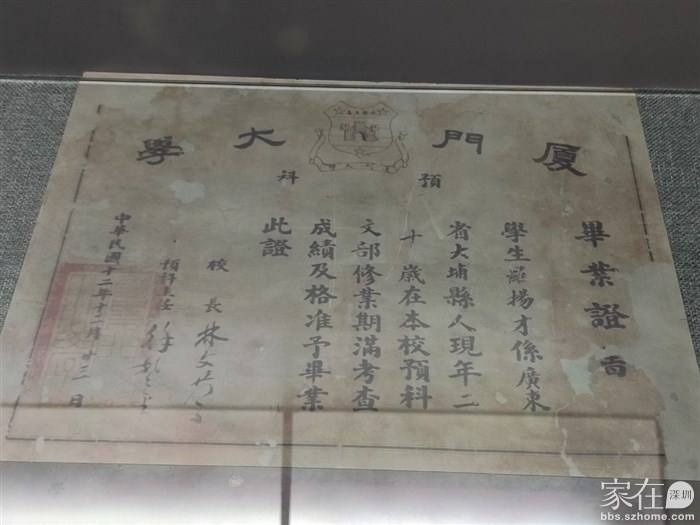 厦門大學
預科
畢業證書
學生羅揚才係廣東
省大埔縣人現年二
十歲在本校預科
文部修業期滿考查
成績及格准予畢業
此證
校長林文慶
預科主任徐
中華民國十二年十二月廿三日
家在深圳
bbs.szhome.com